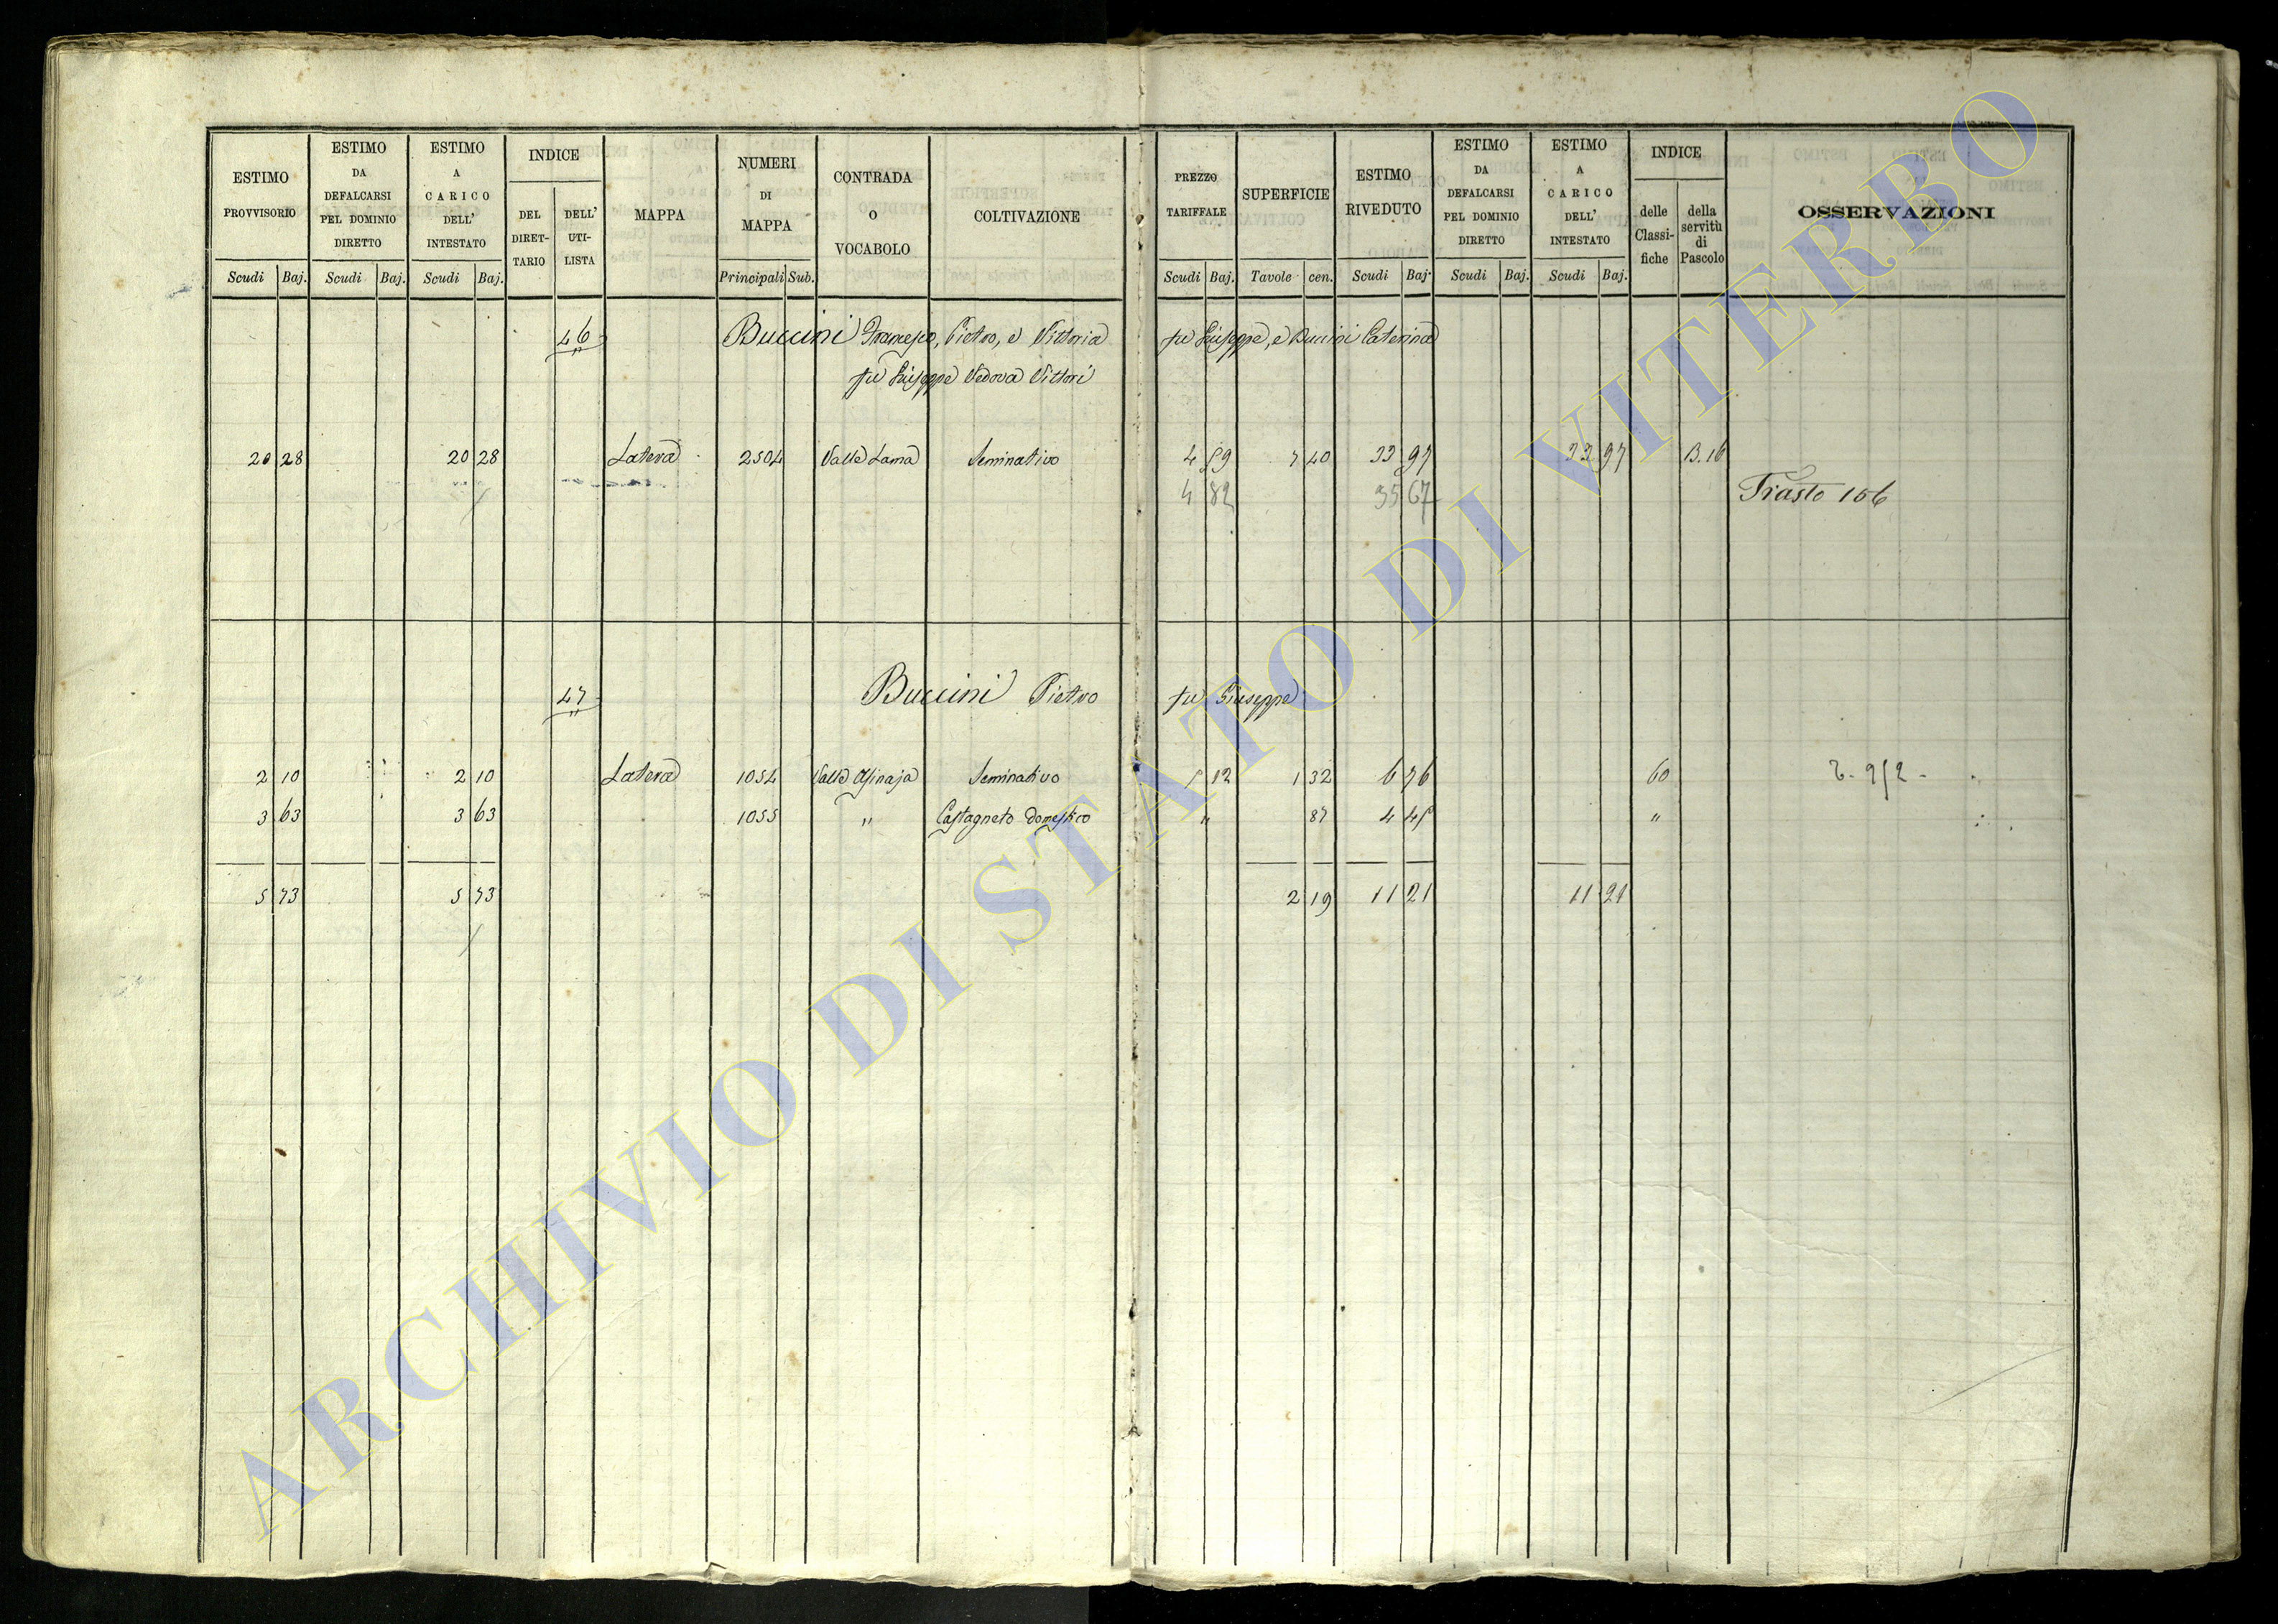 ESTIMO PROVVISORIO Scudi Baj.
ESTIMO DA DEFALCARSI PEL DOMINIO DIRETTO Scudi Baj.
ESTIMO A CARICO DELL' INTESTATO Scudi Baj.
INDICE DEL DIRET- TARIO DELL' UTI- LISTA
MAPPA
NUMERI DI MAPPA Principali Sub.
CONTRADA O VOCABOLO
COLTIVAZIONE
PREZZO TARIFFALE Scudi Baj.
SUPERFICIE Tavole cen.
ESTIMO RIVEDUTO Scudi Baj.
ESTIMO DA DEFALCARSI PEL DOMINIO DIRETTO Scudi Baj.
ESTIMO A CARICO DELL' INTESTATO Scudi Baj.
INDICE delle Classi- fiche della servitù di Pascolo
OSSERVAZIONI
46 Buccini Francesco, Pietro, e Vittoria fu Giuseppe, e Buccini Caterina
fu Giuseppe Vedova Vittori
20 28 20 28 Latera 2504 Valle Lama Seminativo 4 59 7 40 33 97 33 97 B. 16
4 82 35 67 Trasto 106
47 Buccini Pietro fu Giuseppe
2 10 2 10 Latera 1054 Valle Asinaja Seminativo 5 12 1 32 6 76 60
3 63 3 63 1055 " Castagneto domestico " 87 4 45 "
5 73 5 73 2 19 11 21 11 21
ARCHIVIO DI STATO DI VITERBO